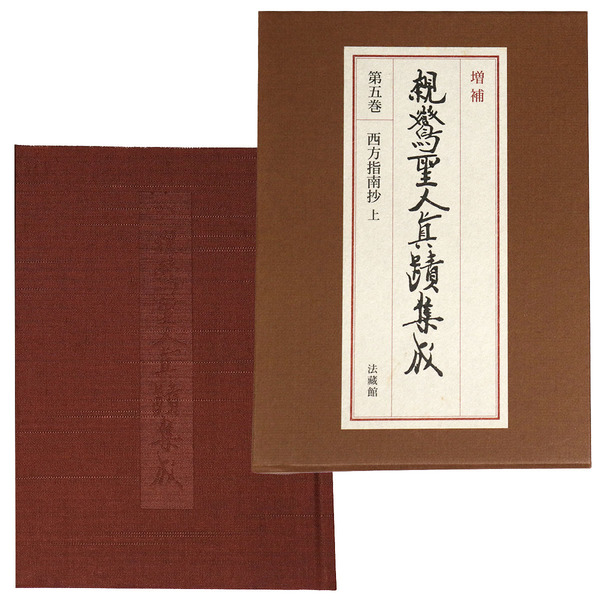 増補
親鸞聖人真蹟集成
第五巻 西方指南抄 上
法藏館
親鸞聖人真蹟集成